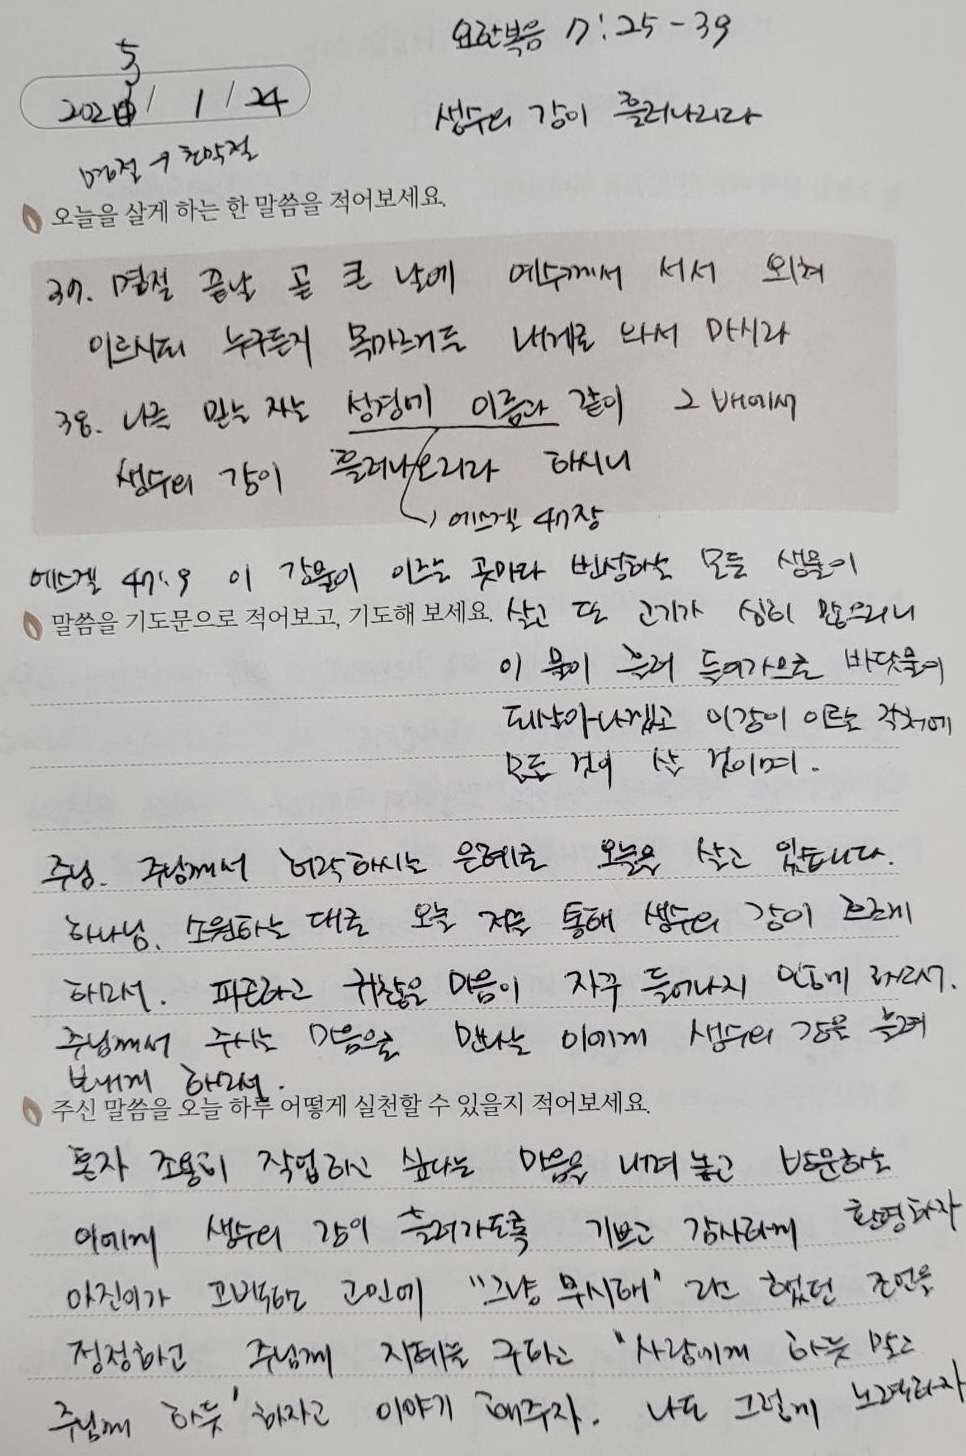 요한복음 7:25-39
2025 / 1 / 24
생수의 강이 흘러나리라
명절 → 초막절
오늘을 살게 하는 한 말씀을 적어보세요.
37. 명절 끝날 곧 큰 날에 예수께서 서서 외쳐
이르시되 누구든지 목마르거든 내게로 와서 마시라
38. 나를 믿는 자는 성경에 이름과 같이 그 배에서
생수의 강이 흘러나오리라 하시니
에스겔 47장
에스겔 47:9 이 강물이 이르는 곳마다 번성하는 모든 생물이
말씀을 기도문으로 적어보고, 기도해 보세요.
살고 또 고기가 심히 많으리니
이 물이 흘러 들어가므로 바닷물이
되살아나겠고 이강이 이르는 각처에
모든 것이 살 것이며.
주님. 주님께서 허락하시는 은혜로 오늘을 살고 있습니다.
하나님. 소원하는 대로 오늘 저를 통해 생수의 강이 흐르게
하소서. 피곤하고 귀찮은 마음이 자꾸 들어나지 않게 하소서.
주님께서 주시는 마음으로 만나는 이에게 생수의 강을 흘려
보내게 하소서.
주신 말씀을 오늘 하루 어떻게 실천할 수 있을지 적어보세요.
혼자 조용히 작업하고 싶다는 마음을 내려 놓고 방문하는
이에게 생수의 강이 흘러가도록 기쁘고 감사하게 환영하자
아진이가 고백한 고민에 "그냥 무시해" 라고 했던 조언을
정정하고 주님께 지혜를 구하고 '사람에게 하듯 말고
주님께 하듯' 하자고 이야기 해주자. 나도 그렇게 노력하자